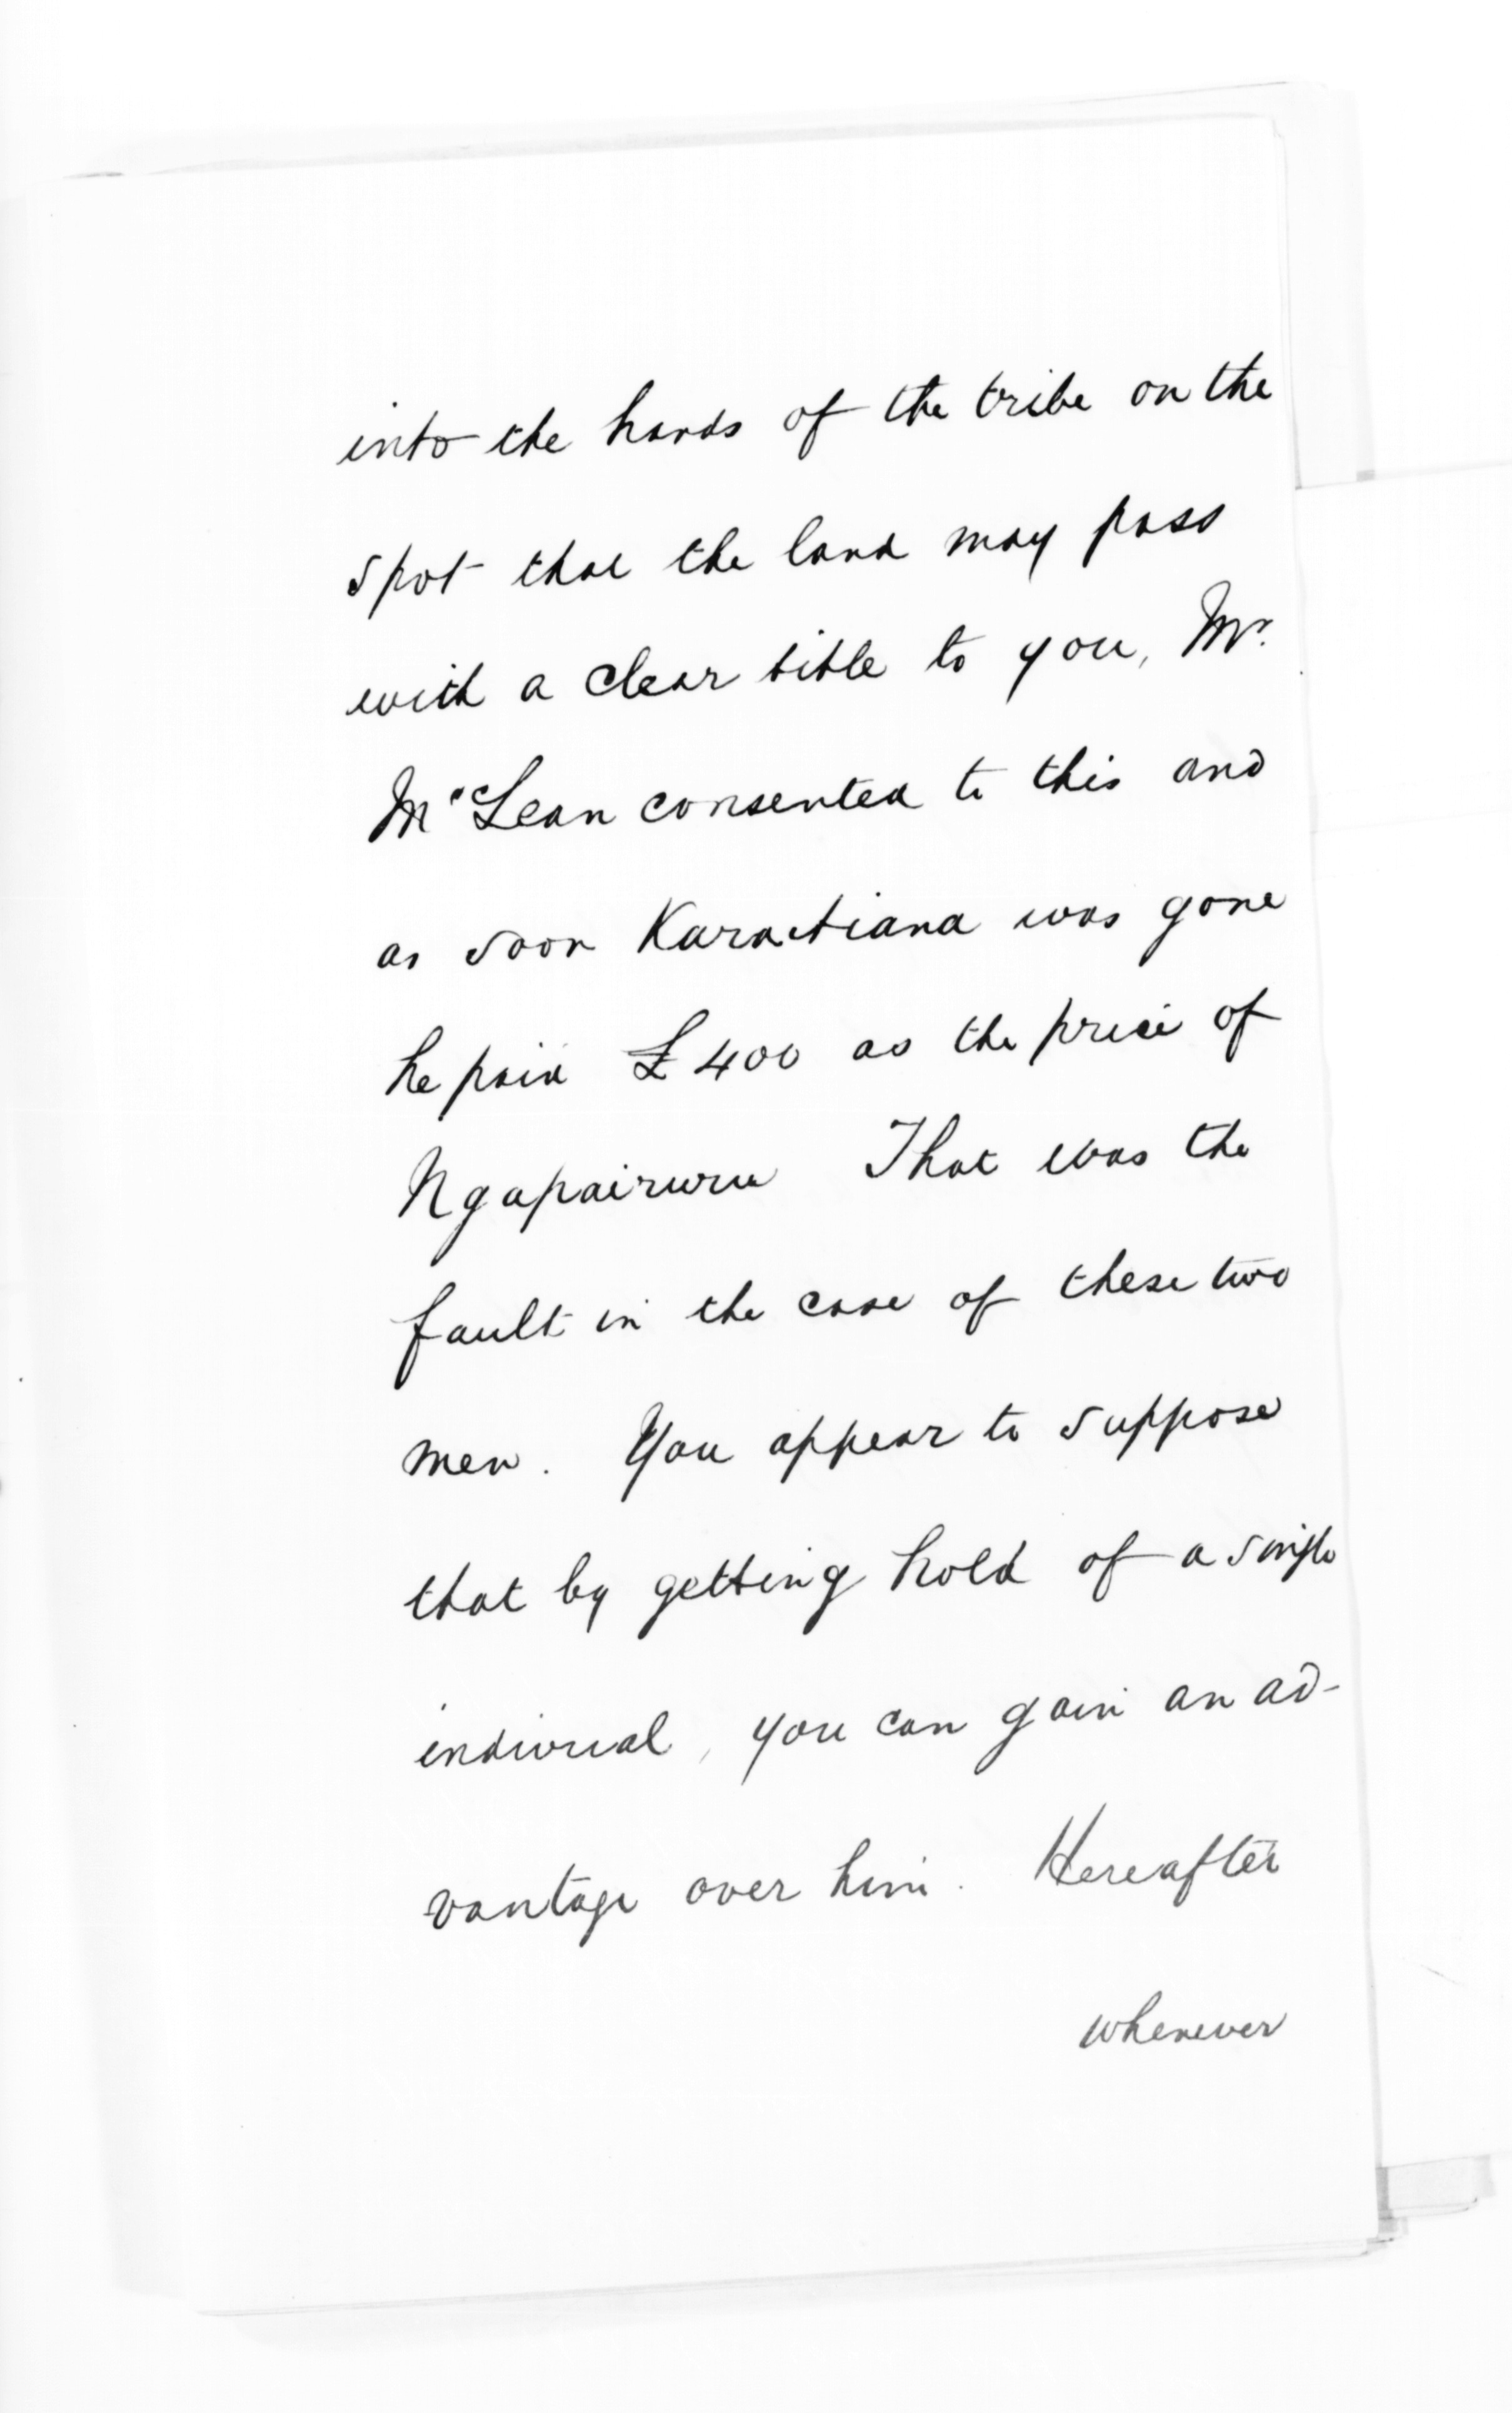 into the hands of the tribe on the
spot that the land may pass
with a clear title to you, Mr.
McLean consented to this and
as soon Karaitiana was gone
he paid £400 as the price of
Ngapairuru That was the
fault in the case of these two
men. You appear to suppose
that by getting hold of a single
indivual, you can gain an ad-
vantage over him. Hereafter
whenever